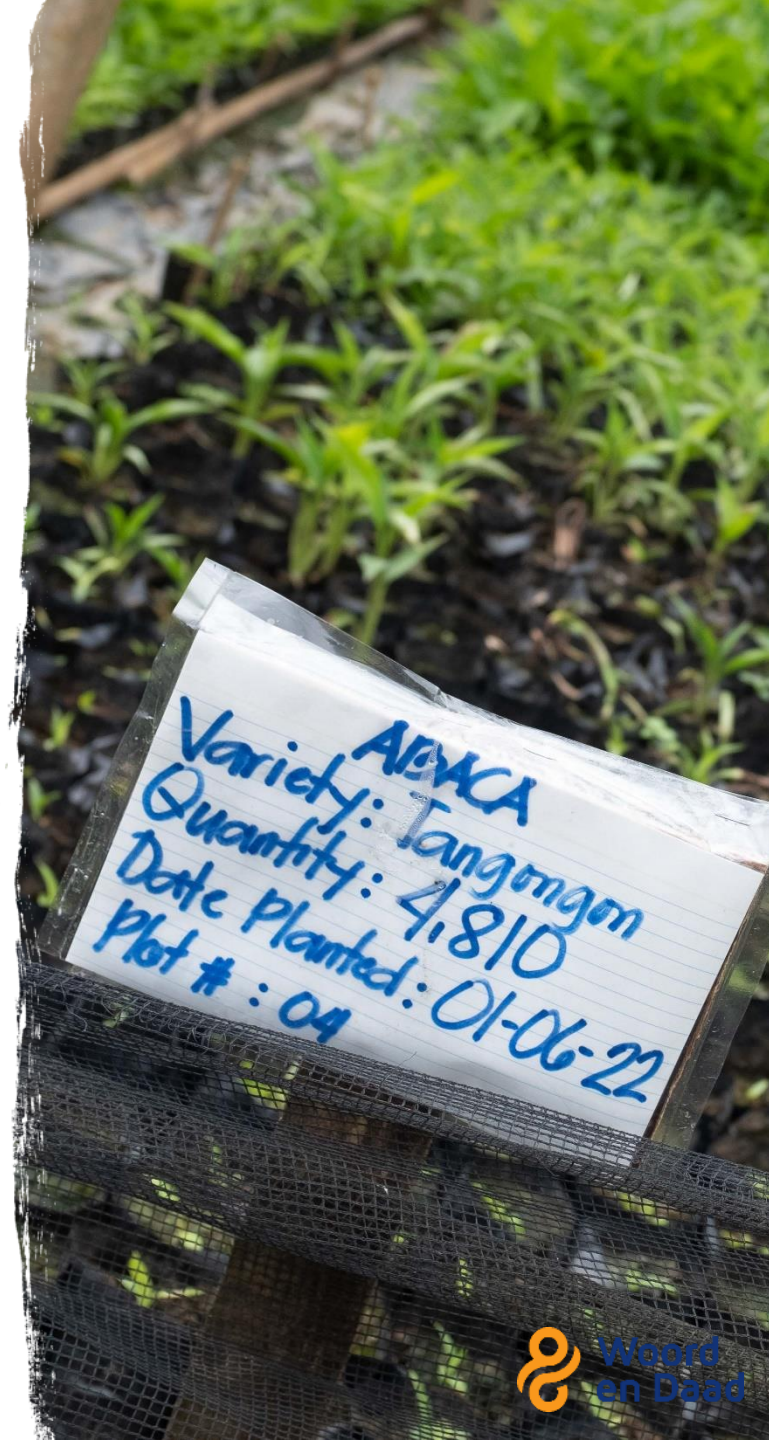 ABACA
Variety: Tangongon
Quantity: 4,810
Date Planted: 01-06-22
Plot #: 04
Woord
en Daad